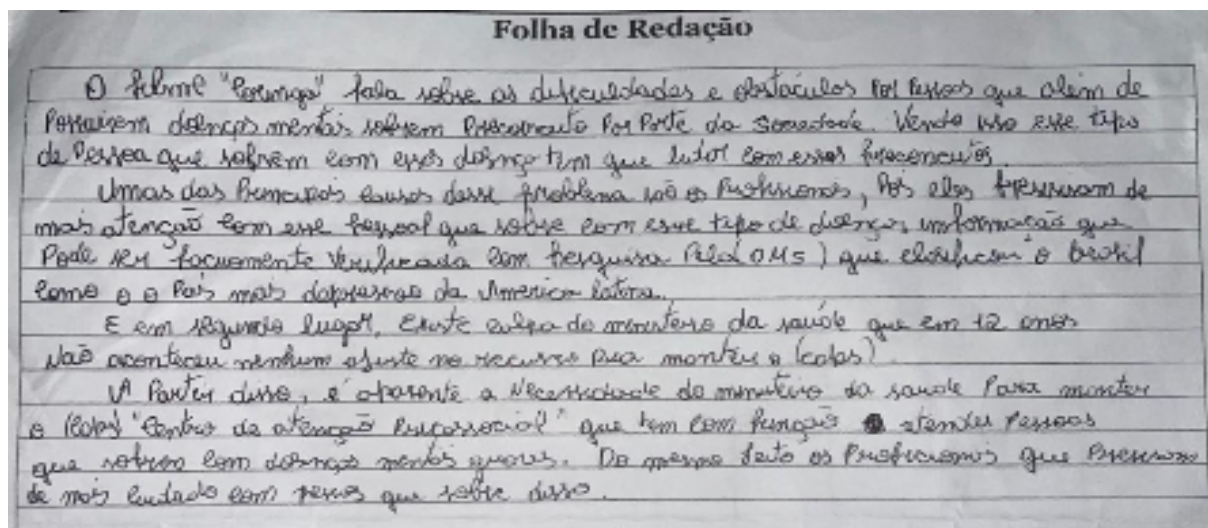 Folha de Redação
O filme "Coringa" fala sobre as dificuldades e obstáculos Por Pessoas que além de
Possuirem doenças mentais sofrem Preconceito Por Parte da Sociedade. Vendo isso esse tipo
de Pessoa que sofrem com essas doença tem que lutar com esses preconceitos.
Umas das Principais causas desse problema são os Profissionais, Pois eles precisam de
mais atenção com esse pessoal que sobre com esse tipo de doenças informação que
Pode ser facilmente Verificada com pesquisa Pela (OMS) que classificam o brasil
como o o País mais depressivo da America latina.
E em segundo lugar, Existe culpa do ministerio da saúde que em 12 anos
Não aconteceu nenhum ajuste no recurso Para manter o (caps).
A Partir disso, é aparente a Necessidade do ministerio da saude Para manter
o (caps) "Centro de atenção Psicossocial" que tem com função atender Pessoas
que sofrem com doenças mentais graves. Do mesmo jeito os Profissionais que Precisam
de mais cuidado com pessoas que sobre disso.